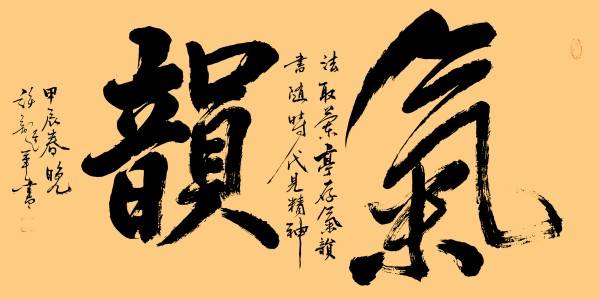 氣
法取蘭亭存氣韻
書隨時代見精神
韻
甲辰春晚
書